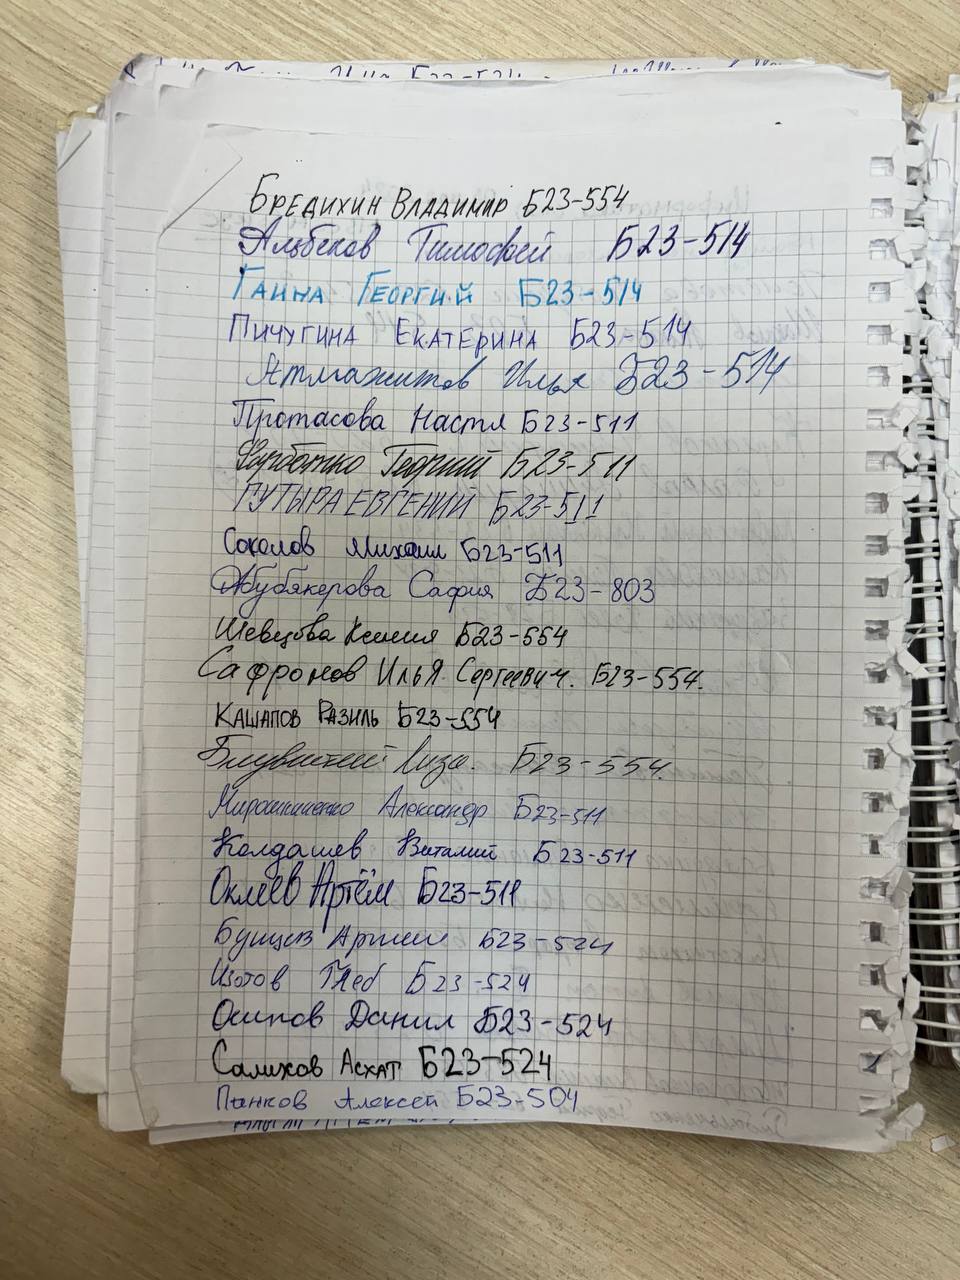 Бредихин Владимир Б23-554
Альбеков Тимофей Б23-514
Гайна Георгий Б23-514
Пичугина Екатерина Б23-514
Атмажитов Илья Б23-514
Протасова Настя Б23-511
Георгий Б23-511
Гутыра Евгений Б23-511
Соколов Михаил Б23-511
Абубякерова Сафия Б23-803
Шевцова Ксения Б23-554
Сафронов Илья Сергеевич. Б23-554.
Кашапов Разиль Б23-554
Лиза. Б23-554.
Мирошниченко Александр Б23-511
Колдашев Виталий Б23-511
Оклеев Артём Б23-511
Артем Б23-524
Изотов Глеб Б23-524
Осипов Данил Б23-524
Салихов Асхат Б23-524
Панков Алексей Б23-504